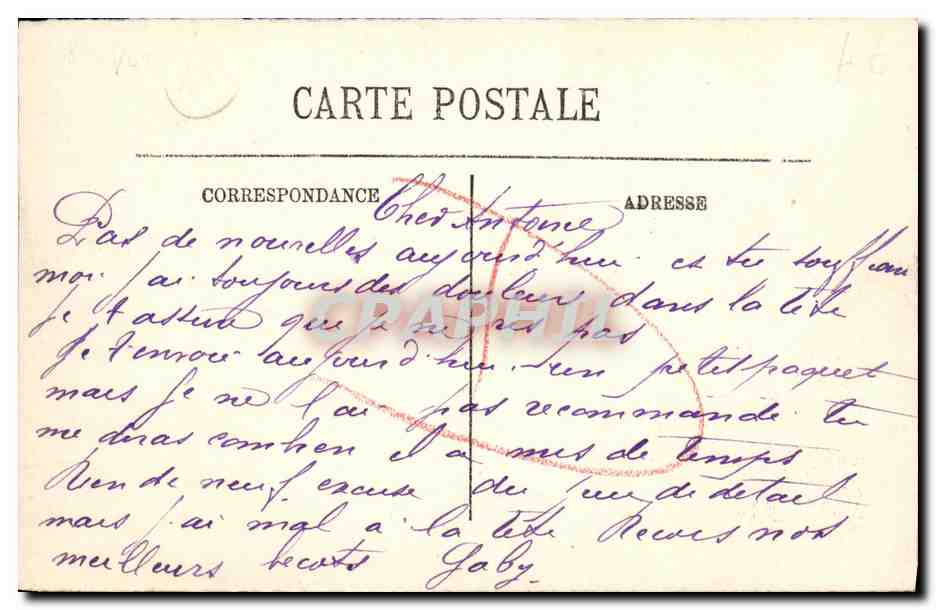 CARTE POSTALE
CORRESPONDANCE
ADRESSE
Cher Antoine
Pas de nouvelles aujourd'hui es tu souffran
moi j'ai toujours des douleurs dans la tête
je t'assure que je ne ris pas
Je t'envoie aujourd'hui un petit paquet
mais je ne l'ai pas recommandé tu
me diras combien il a mis de temps
Rien de neuf excuse du peu de détail
mais j'ai mal a la tête Recois nos
meilleurs becots Gaby
CPAPHIL